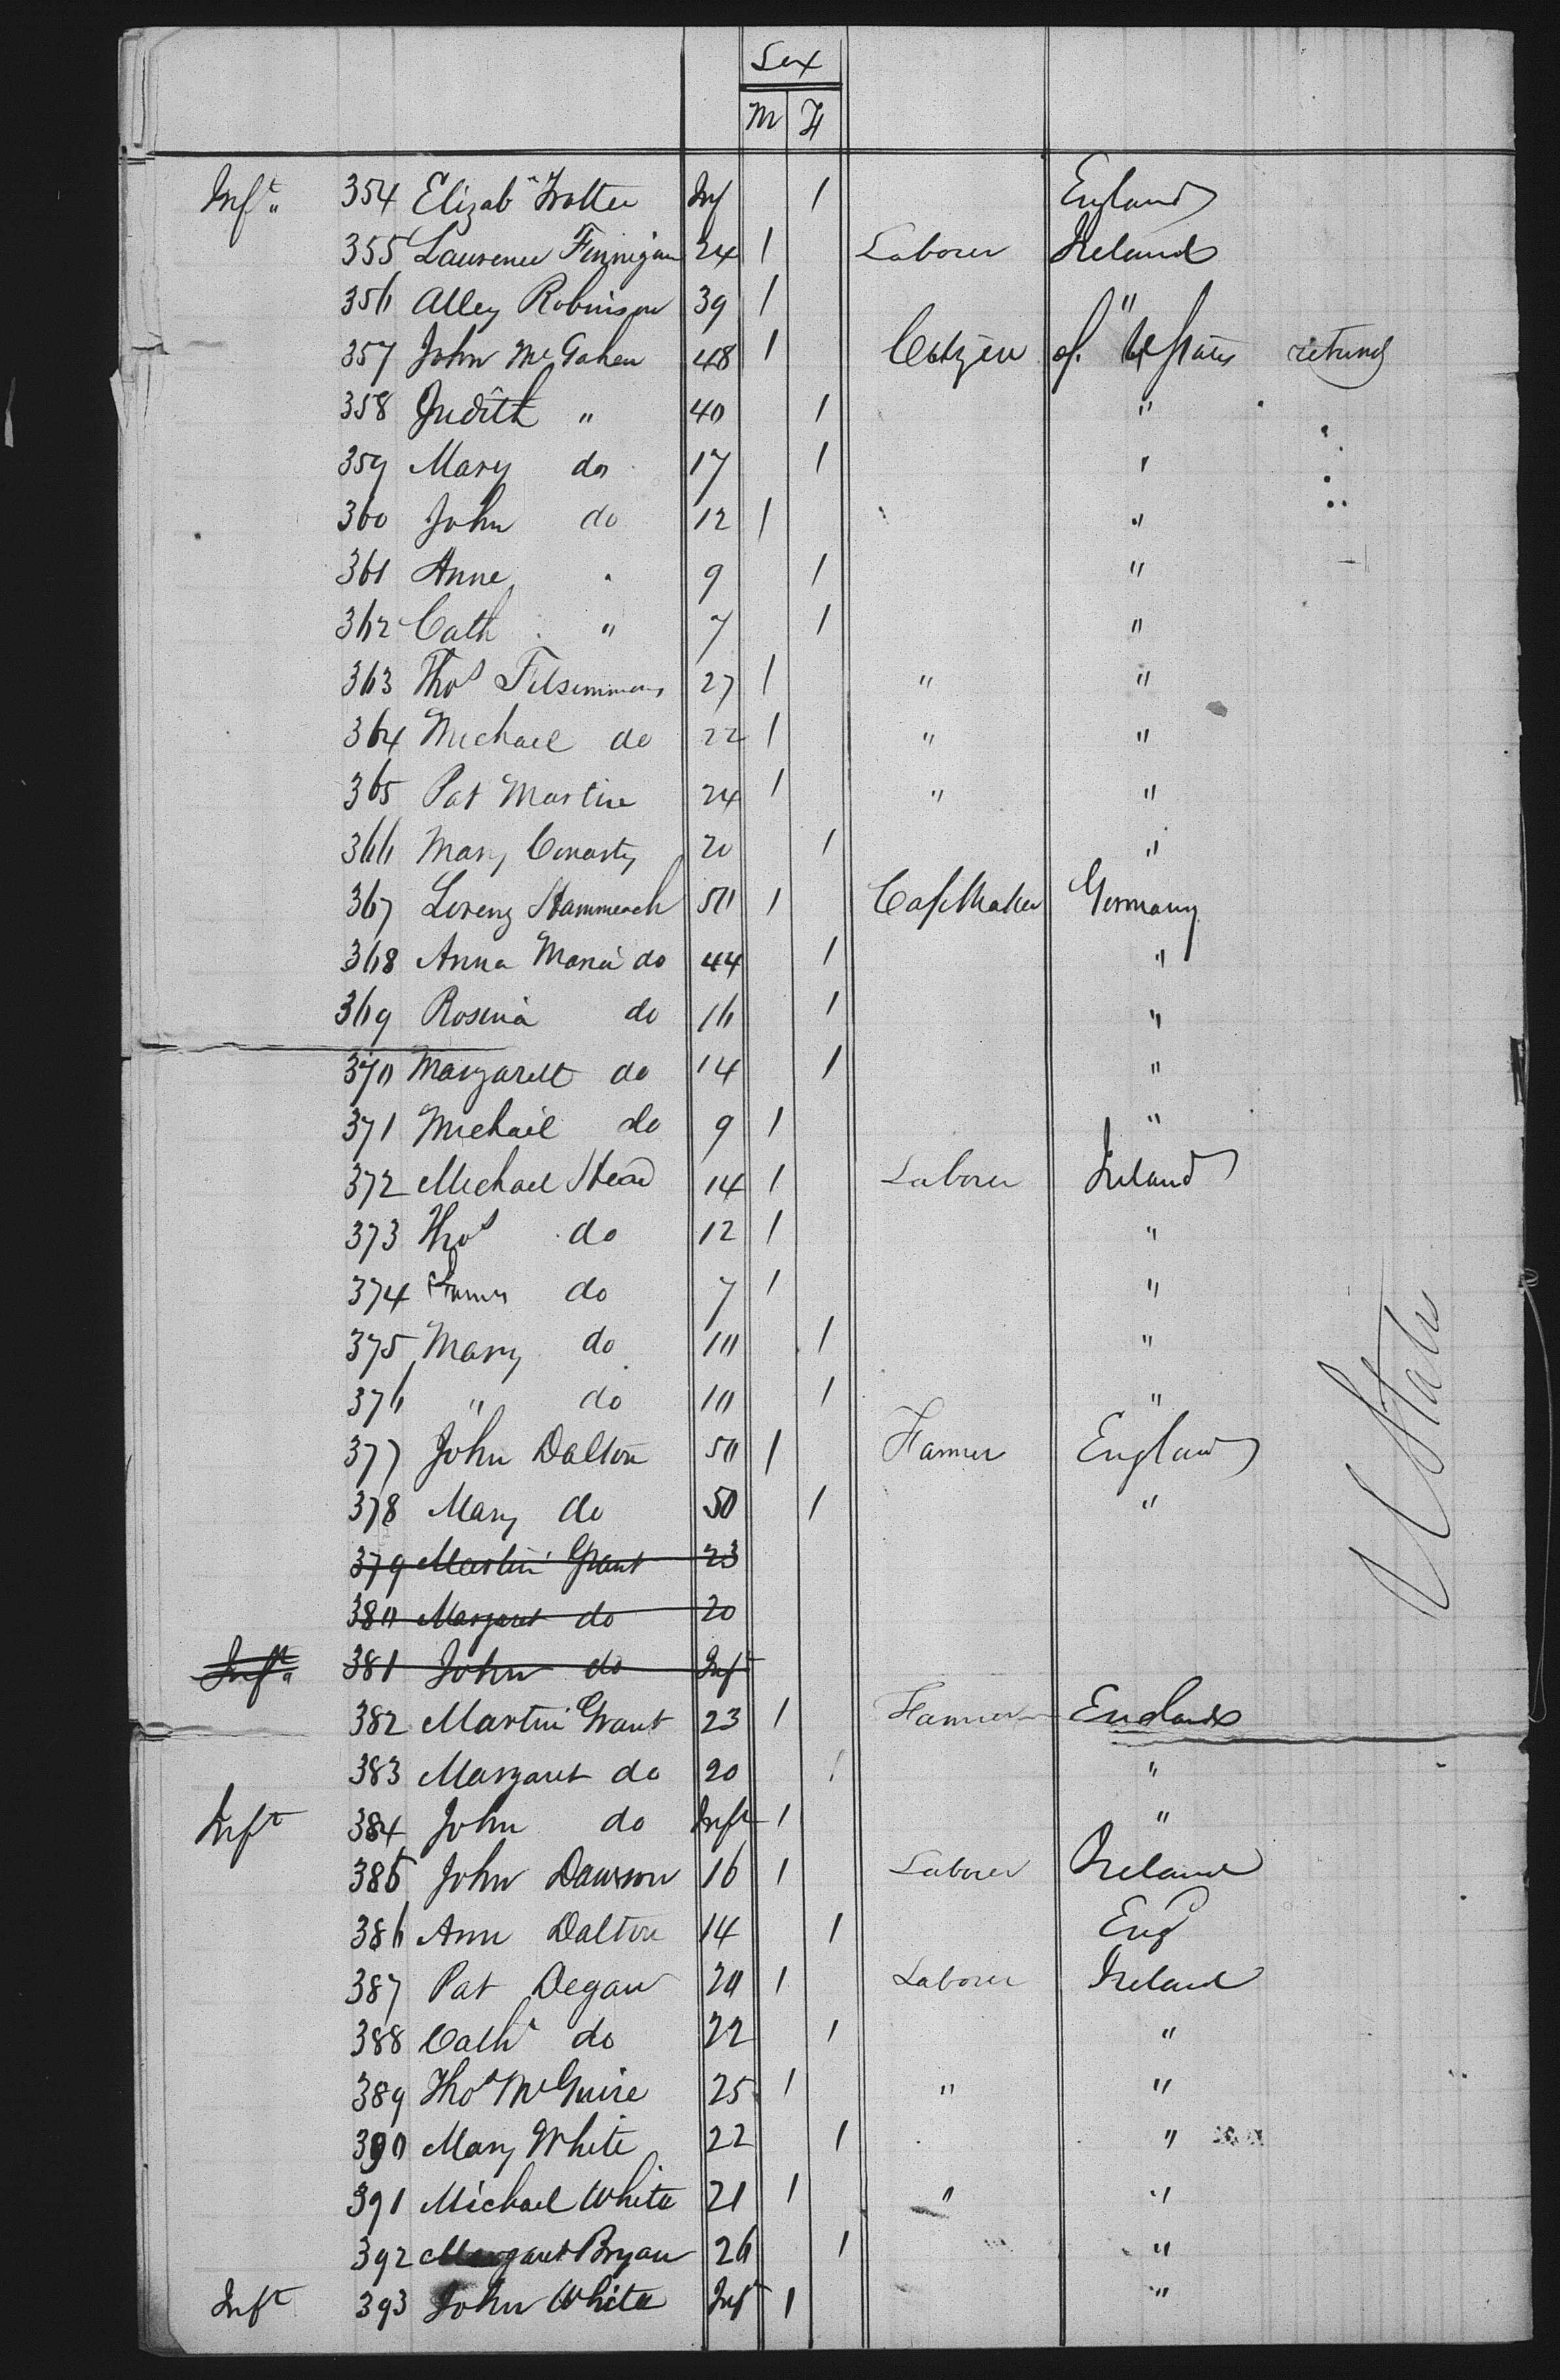 Sex
M F
Inft 354 Elizabth Trotter Inf 1 England
355 Laurence Finnigan 24 1 Laborer Ireland
356 Alley Robinson 39 1 "
357 John McGahen 48 1 Citizen of U States returng
358 Judith " 40 1 "
359 Mary do 17 1 "
360 John do 12 1 "
361 Anne " 9 1 "
362 Cath " 7 1 "
363 Thos Fitsimmons 27 1 " "
364 Michael do 22 1 " "
365 Pat Martin 24 1 " "
366 Mary Conarty 20 1 "
367 Lorenz 50 1 Cap Maker Germany
368 Anna Maria do 44 1 "
369 Rosina do 16 1 "
370 Margarett do 14 1 "
371 Michail do 9 1 "
372 Michael Head 14 1 Laborer Ireland
373 Thos do 12 1 "
374 James do 7 1 "
375 Mary do 10 1 "
376 " do 10 1 "
377 John Dalton 50 1 Farmer England
378 Mary do 50 1 "
379 Martin Grant 23
380 Margaret do 20
Inft 381 John do Inft
382 Martin Grant 23 1 Farmer England
383 Margaret do 20 1 "
Inft 384 John do Inft 1 "
385 John Dawson 16 1 Laborer Ireland
386 Ann Dalton 14 1 Eng
387 Pat Degan 20 1 Laborer Ireland
388 Cath do 22 1 "
389 Thos McGuire 25 1 " "
390 Mary White 22 1 "
391 Michael White 21 1 " "
392 Margaret Bryan 26 1 "
Inft 393 John White Inft 1 "
U States